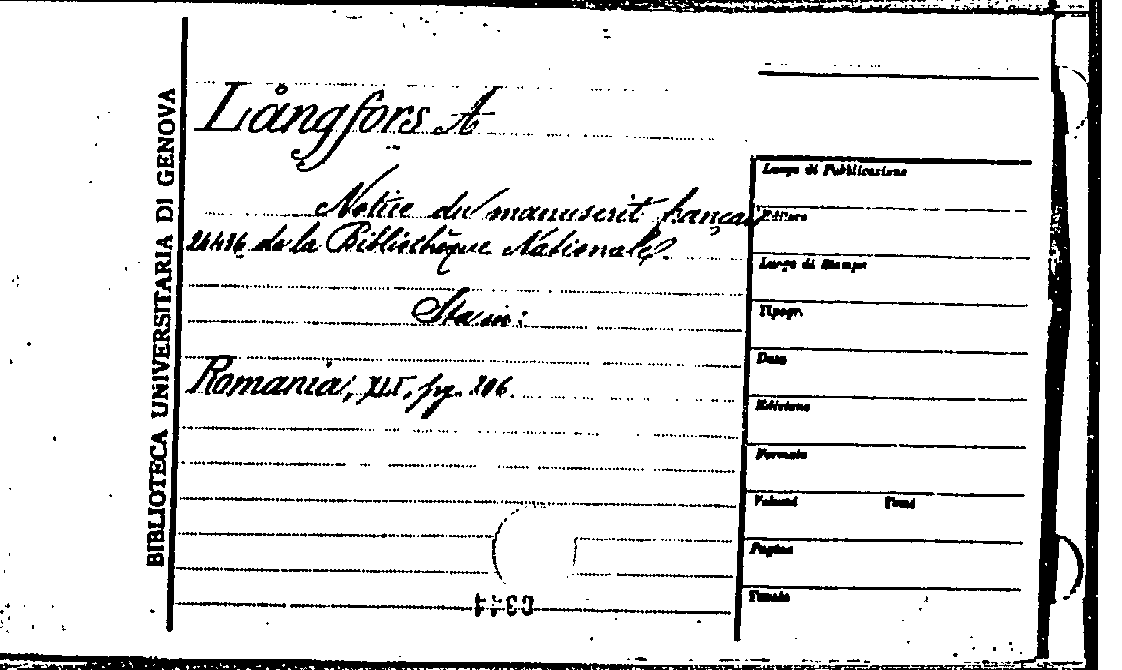 BIBLIOTECA UNIVERSITARIA DI GENOVA
Långfors A
Notice du manuscrit français
24436 de la Bibliothèque Nationale.
Sta in:
Romania, XLI, pg. 206.
Luogo di Pubblicazione
Editore
Luogo di Stampa
Tipogr.
Data
Edizione
Formato
Volumi
Pagine
Tavole